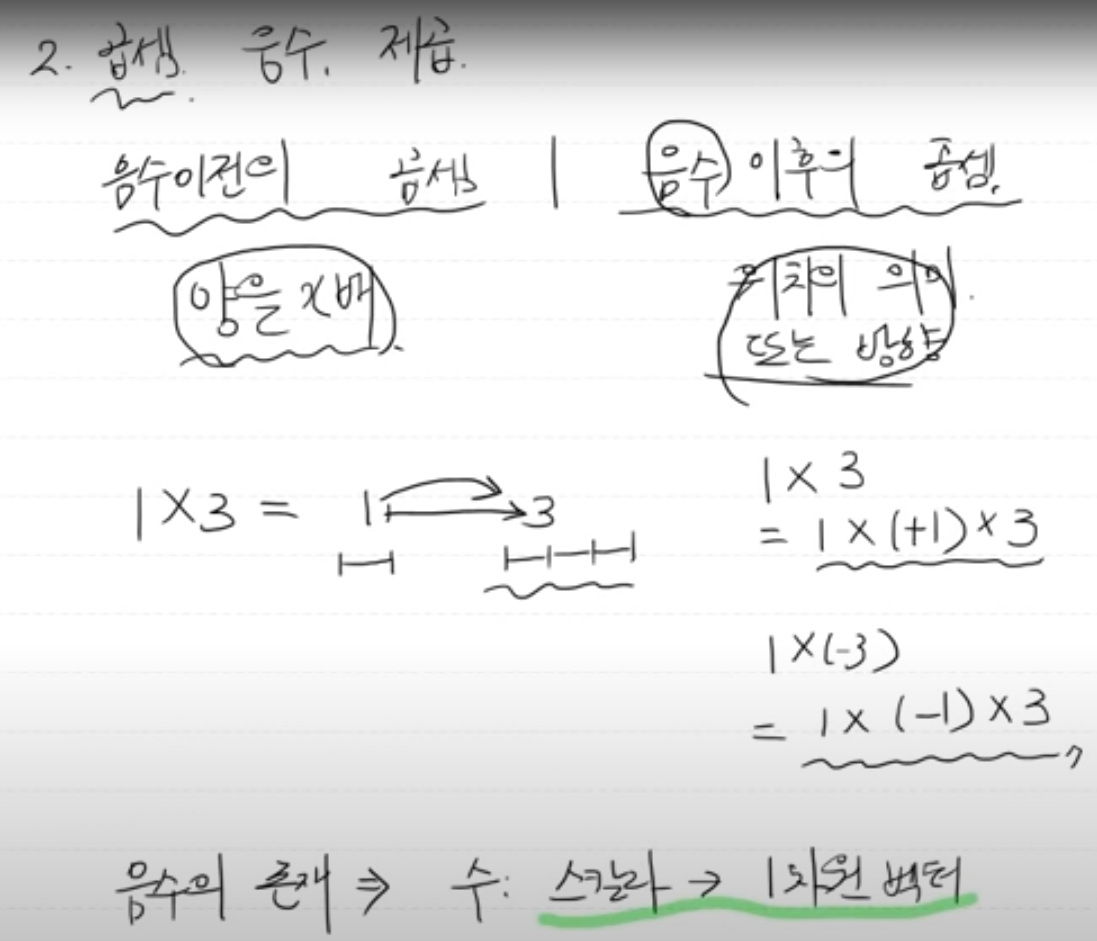 2. 곱셈. 음수. 제곱.
음수이전의 곱셈 | 음수 이후의 곱셈.
양을 x배
위치의 의미.
또는 방향
1×3 = 1 3
1×3
= 1×(+1)×3
1×(-3)
= 1×(-1)×3
음수의 존재 ⇒ 수: 스칼라 → 1차원 벡터